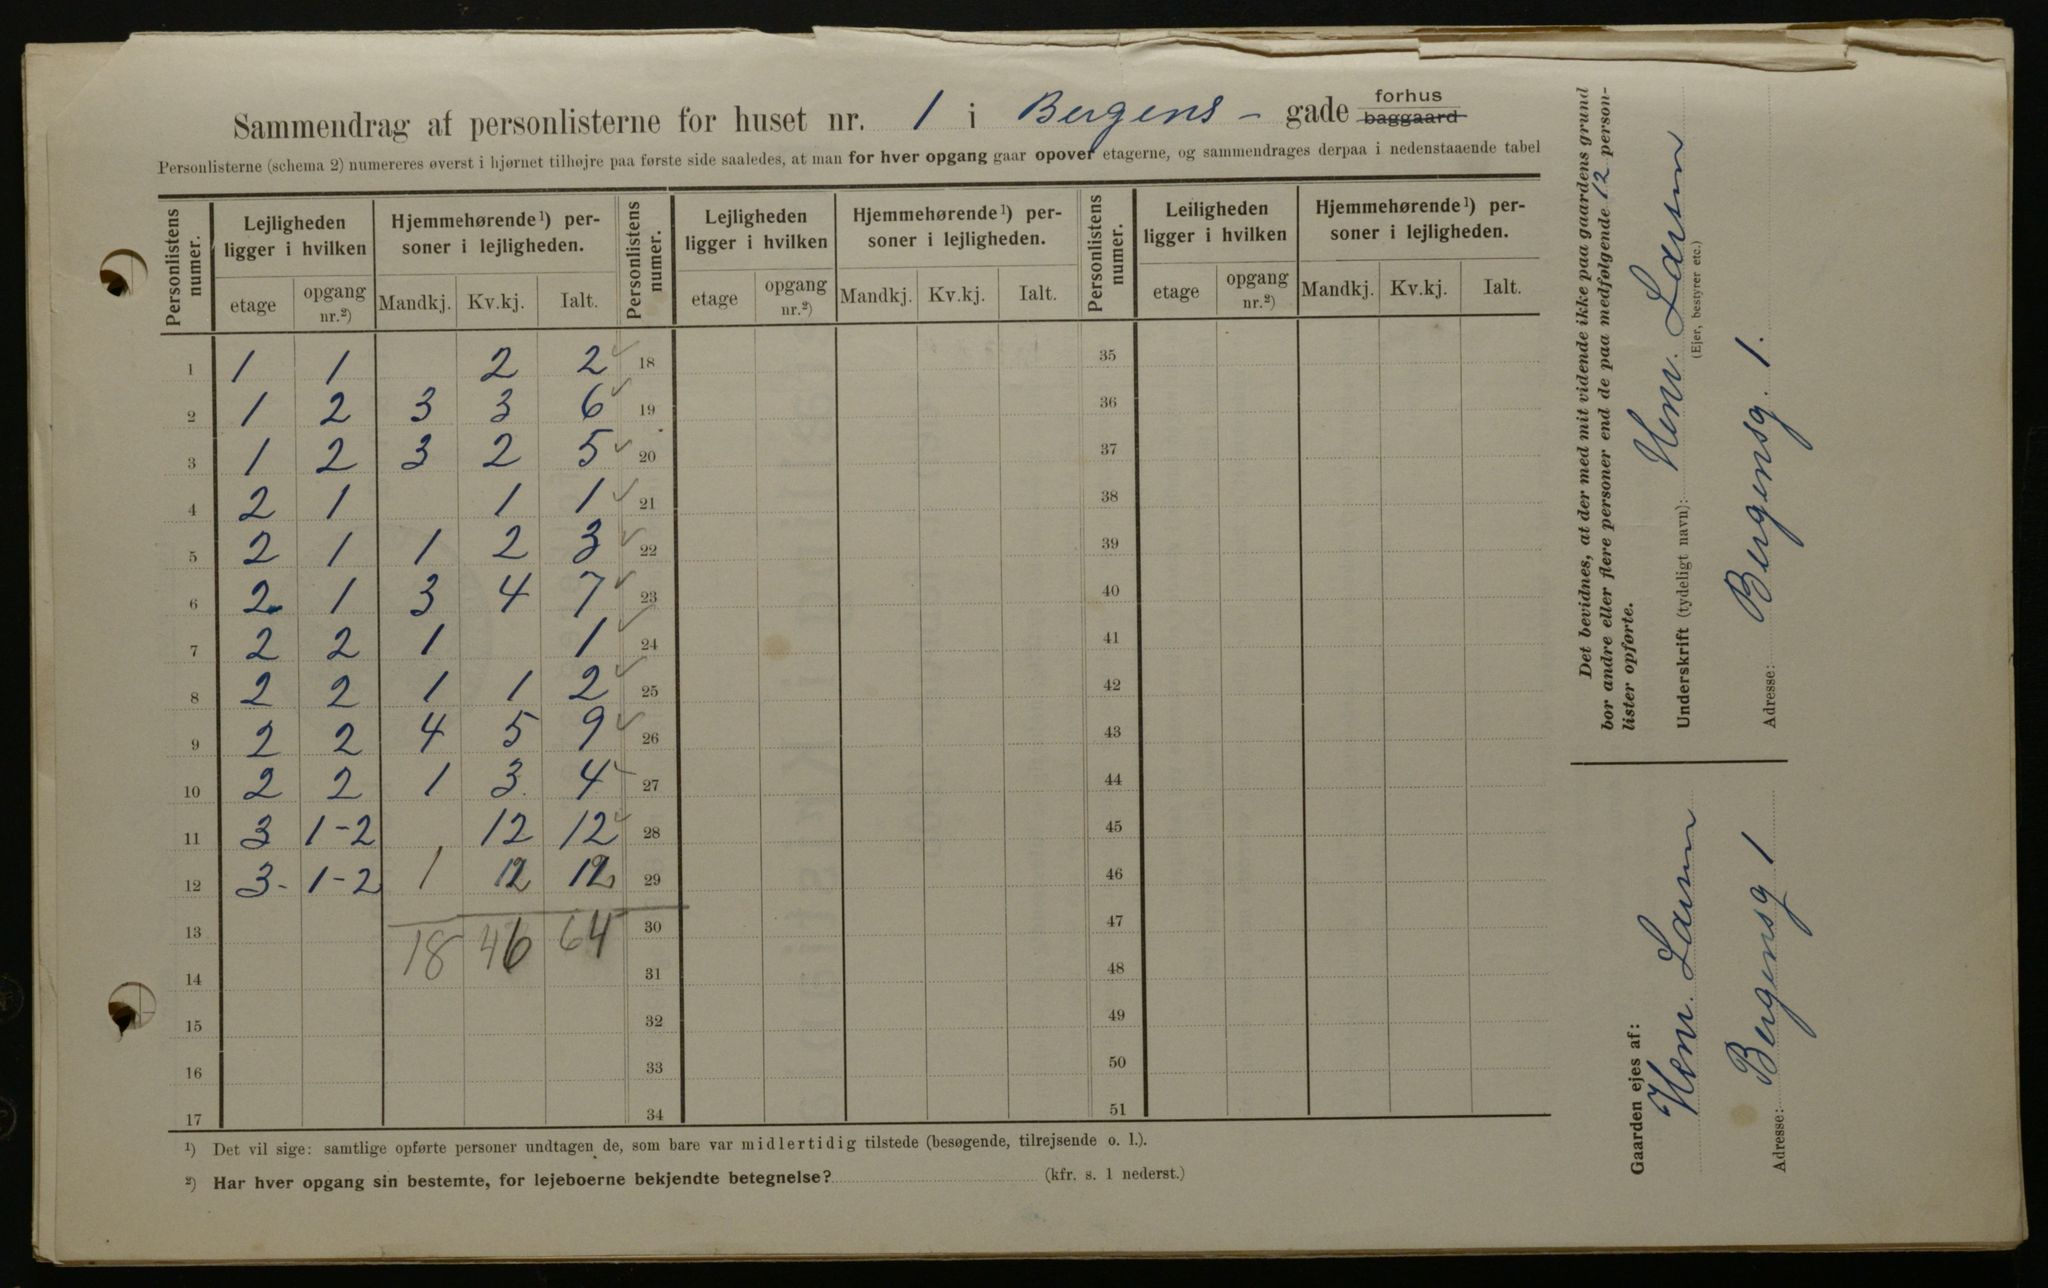 Sammendrag af personlisterne for huset nr. 1 i Bergens- gade forhus baggaard
Personlisterne (schema 2) numereres øverst i hjørnet tilhøjre paa første side saaledes, at man for hver opgang gaar opover etagerne, og sammendrages derpaa i nedenstaaende tabel
Personlistens numer. Lejligheden ligger i hvilken Hjemmehørende¹) personer i lejligheden. Personlistens numer. Lejligheden ligger i hvilken Hjemmehørende¹) personer i lejligheden. Personlistens numer. Leiligheden ligger i hvilken Hjemmehørende¹) personer i lejligheden.
etage opgang nr.²) Mandkj. Kv.kj. Ialt. etage opgang nr.²) Mandkj. Kv.kj. Ialt. etage opgang nr.²) Mandkj. Kv.kj. Ialt.
1 1 1 2 2 18 35
2 1 2 3 3 6 19 36
3 1 2 3 2 5 20 37
4 2 1 1 1 21 38
5 2 1 1 2 3 22 39
6 2 1 3 4 7 23 40
7 2 2 1 1 24 41
8 2 2 1 1 2 25 42
9 2 2 4 5 9 26 43
10 2 2 1 3 4 27 44
11 3 1-2 12 12 28 45
12 3- 1-2 1 29 46
13 18 46 64 30 47
14 31 48
15 32 49
16 33 50
17 34 51
¹) Det vil sige: samtlige opførte personer undtagen de, som bare var midlertidig tilstede (besøgende, tilrejsende o. l.).
²) Har hver opgang sin bestemte, for lejeboerne bekjendte betegnelse? (kfr. s. 1 nederst.)
Det bevidnes, at der med mit vidende ikke paa gaardens grund
bor andre eller flere personer end de paa medfølgende 12 person-
lister opførte.
Underskrift (tydeligt navn): Hen. Larsen
(Ejer, bestyrer etc.)
Adresse: Bergensg. 1.
Gaarden ejes af:
Hen. Larsen
Adresse: Bergensg 1